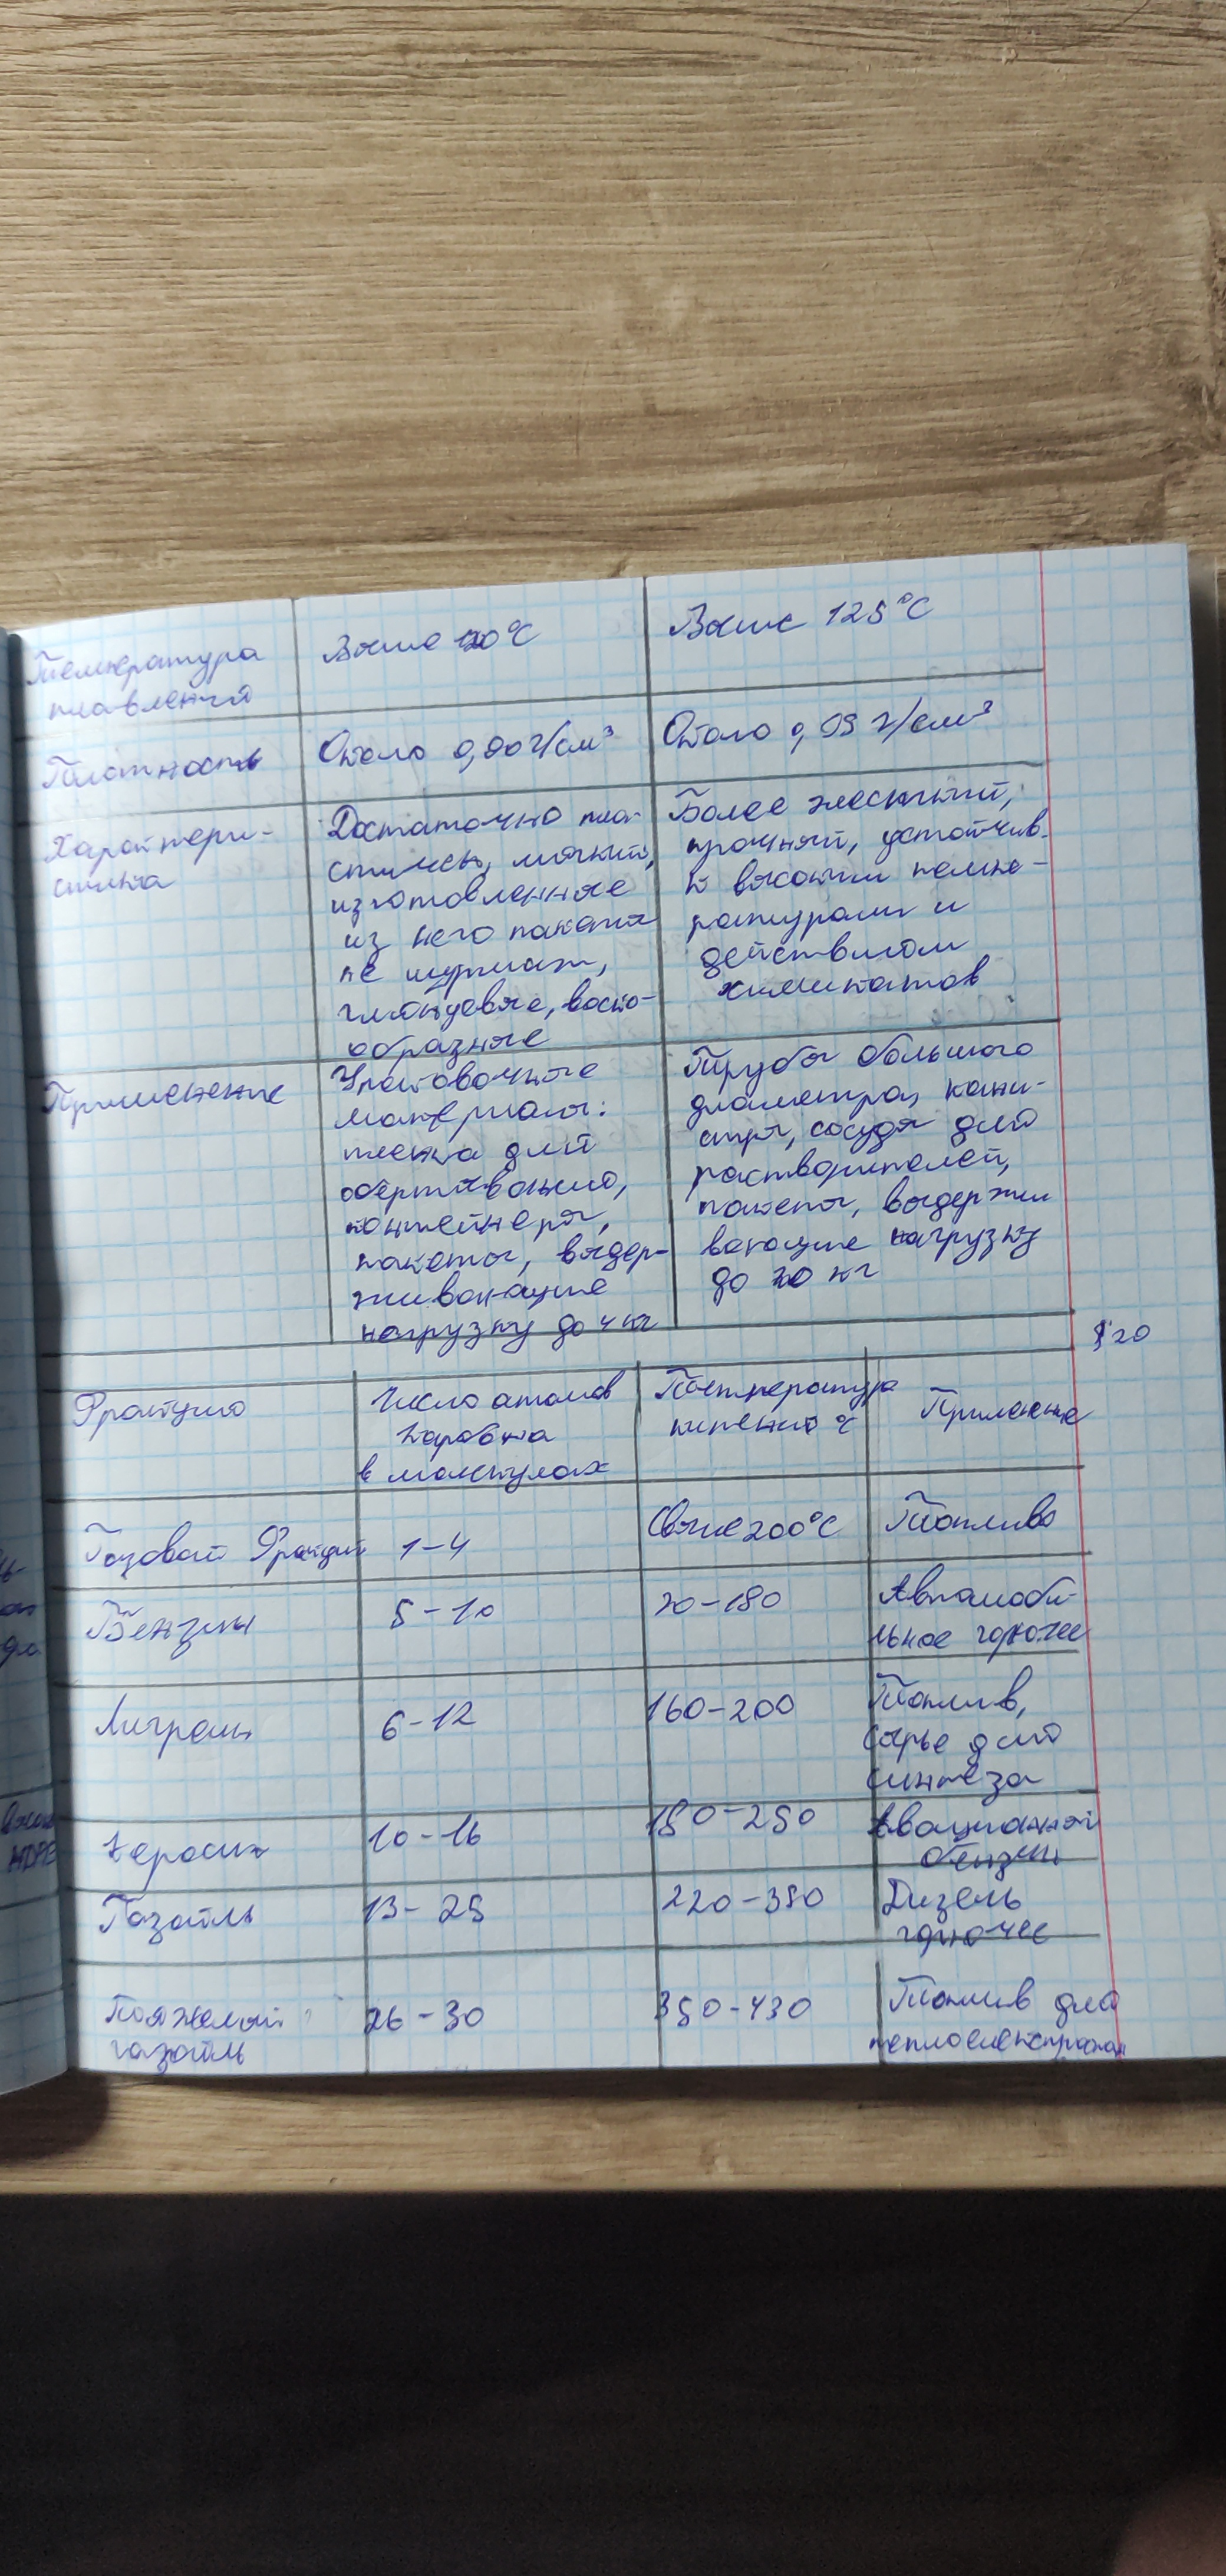 Температура
плавления
Выше 120°С
Выше 125°С
Плотность
Около 0,90 г/см³
Около 0,95 г/см³
Характери-
стика
Достаточно пла-
стичен, мягкий,
изготовленные
из него пакеты
не шуршат,
глянцевые, воско-
образные
Более эластичный,
прочный, устойчив.
к высоким темпе-
ратурам и
действиям
химикатов
Применение
Упаковочные
материалы:
пленка для
обёртывания,
контейнеры,
пакеты, выдер-
живающие
нагрузку до 4 кг
Трубы большого
диаметра, кани-
стры, сосуды для
растворителей,
пакеты, выдержи
вающие нагрузку
до кг
§20
Фракция
Число атомов
карбона
в молекулах
Температура
кипения °С
Применение
Газовая Фракция
1-4
Свыше 200°С
Топливо
Бензин
5-10
20-180
Автомоби-
льное горючее
Лигроин
6-12
160-200
Топлив,
сырье для
синтеза
Керосин
10-16
180-250
Авационный
бензин
Газойль
13-25
220-350
Дизель
горючее
Тояжелый
газойль
26-30
350-430
Топлив для